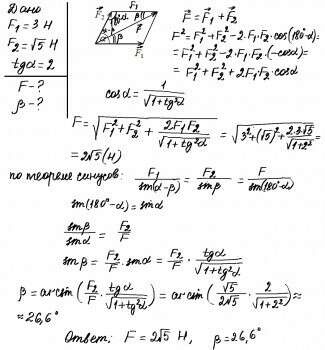 Дано
F₁ = 3 Н
F₂ = √5 Н
tgα = 2
F - ?
β - ?
F₁
F₂
α
β
F
F₁
F⃗ = F⃗₁ + F⃗₂
F² = F₁² + F₂² - 2·F₁·F₂·cos(180°-α) =
= F₁² + F₂² - 2·F₁·F₂·(-cosα) =
= F₁² + F₂² + 2F₁F₂ cosα
cosα = 1/√(1+tg²α)
F = √(F₁² + F₂² + 2F₁F₂/√(1+tg²α)) = √(3² + (√5)² + 2·3·√5/√(1+2²)) =
= 2√5 (Н)
по теореме синусов: F₁/sin(α-β) = F₂/sinβ = F/sin(180°-α)
sin(180°-α) = sinα
sinβ/sinα = F₂/F
sinβ = F₂/F · sinα = F₂/F · tgα/√(1+tg²α)
β = arcsin(F₂/F · tgα/√(1+tg²α)) = arcsin(√5/2√5 · 2/√(1+2²)) ≈
≈ 26,6°
Ответ: F = 2√5 Н, β = 26,6°